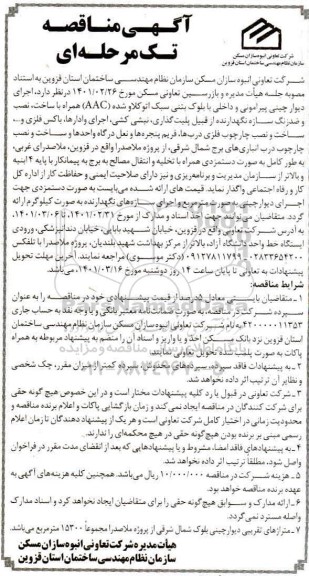 آگهی مناقصه
تک مرحله‌ای
شرکت تعاونی انبوه سازان مسکن
سازمان نظام مهندسی ساختمان استان قزوین
شرکت تعاونی انبوه سازان مسکن سازمان نظام مهندسی ساختمان استان قزوین به استناد
مصوبه جلسه هیأت مدیره و بازرسین تعاونی مسکن مورخ ۱۴۰۱/۰۲/۲۶ در نظر دارد، اجرای
دیوار چینی پیرامونی و داخلی با بلوک بتنی سبک اتوکلاو شده (AAC) همراه با ساخت، نصب
و ضدزنگ سازه نگهدارنده از قبیل پلیت گذاری، نبشی کشی، اجرای وادارها، باکس فلزی و...
ساخت و نصب چارچوب فلزی درب‌ها، فریم پنجره‌ها و نعل درگاه واحدها و ساخت و نصب
چارچوب درب انباری‌های برج شمال شرقی، از پروژه ملاصدرا واقع در قزوین، ملاصدرای غربی،
به طور کامل به صورت دستمزدی همراه با تخلیه و انتقال مصالح به برج به پیمانکار با پایه ۴ ابنیه
و بالاتر از سازمان مدیریت و برنامه‌ریزی و نیز دارای صلاحیت ایمنی و حفاظت کار از اداره کل
کار و رفاه اجتماعی واگذار نماید. قیمت های ارائه شده می‌بایست به صورت دستمزدی جهت
اجرای دیوارچینی به صورت متر مربع و اجرای سازه‌های نگهدارنده به صورت کیلوگرم ارائه
گردد. متقاضیان می‌توانند جهت اخذ اسناد و مدارک از مورخ ۱۴۰۱/۰۲/۳۱ تا ۱۴۰۱/۰۳/۰۶،
به آدرس شرکت تعاونی واقع در قزوین، خیابان شهید بابایی، خیابان دندانپزشکی، ورودی
ایستگاه خط واحد دانشگاه آزاد، بالاتر از مرکز بهداشت شهید بلندیان، پروژه ملاصدرا با تلفکس
۰۲۸۳۳۶۵۴۲۰۰ و ۰۹۱۲۷۸۱۱۷۹۹ (دکتر موسوی) مراجعه نمایند. آخرین مهلت تحویل
پیشنهادات به تعاونی تا پایان ساعت ۱۴ روز دوشنبه مورخ ۱۴۰۱/۰۳/۱۶ می‌باشد.
شرایط مناقصه:
۱- متقاضیان بایستی معادل درصد از قیمت پیشنهادی خود در مناقصه را به عنوان
سپرده شرکت در مناقصه، به صورت ضمانت‌نامه معتبر بانکی و یا وجه نقد به حساب جاری
به نام شرکت تعاونی انبوه سازان مسکن سازمان نظام مهندسی ساختمان
استان قزوین نزد بانک مسکن اخذ و یا واریز و اسناد آن را منضم به پیشنهاد مربوطه به همراه
پاکات به صورت پلمپ شده تحویل تعاونی نمایند.
۲- به پیشنهادات فاقد سپرده، سپرده‌های مخدوش، سپرده کمتر از میزان مقرر، چک شخصی
و نظایر آن ترتیب اثر داده نخواهد شد.
۳- شرکت تعاونی در قبول یا رد کلیه پیشنهادات مختار است و در این خصوص هیچ گونه حقی
برای شرکت کنندگان در مناقصه ایجاد نمی کند و زمان بازگشایی پاکات و اعلام برنده مناقصه و
محدودیت زمانی در اختیار کامل شرکت تعاونی است و هر یک از پیشنهاد دهندگان تا زمان اعلام
رسمی مبنی بر برنده بودن هیچ گونه حقی در هیچ محکمه‌ای را ندارند.
۴- به پیشنهادهای فاقد امضا، مشروط و یا پیشنهادهایی که بعد از انقضای مدت مقرر در فراخوان
واصل شود، مطلقا ترتیب اثر داده نخواهد شد.
۵- هزینه شرکت در مناقصه ۱۰/۰۰۰/۰۰۰ ریال می‌باشد. همچنین کلیه هزینه‌های آگهی به
عهده برنده مناقصه خواهد بود.
۶- ارائه مدارک و سوابق هیچ گونه حقی را برای متقاضیان ایجاد نخواهد کرد و اسناد مدارک
واصله مسترد نمی‌گردد.
۷- متراژهای تقریبی دیوارچینی بلوک شمال شرقی از پروژه ملاصدرا مجموعاً ۱۵۳۰۰ مترمربع می‌باشد.
هیأت مدیره شرکت تعاونی انبوه سازان مسکن
سازمان نظام مهندسی ساختمان استان قزوین